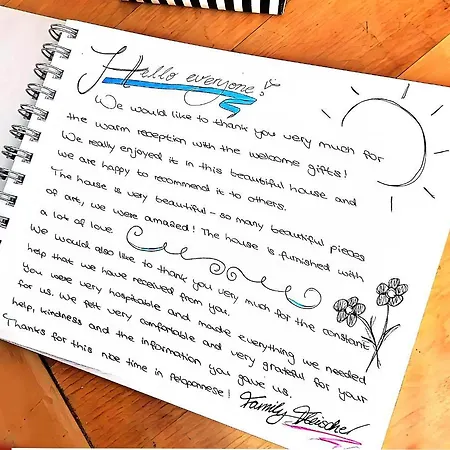 Hello everyone!
We would like to thank you very much for
the warm reception with the welcome gifts!
We really enjoyed it in this beautiful house and
we are happy to recommend it to others.
The house is very beautiful - so many beautiful pieces
of art, we were amazed! The house is furnished with
a lot of love
We would also like to thank you very much for the constant
help that we have received from you.
You were very hospitable and made everything we needed
for us. We felt very comfortable and very grateful for your
help, kindness and the information you gave us.
Thanks for this nice time in Peloponnese!
Family Fleischer